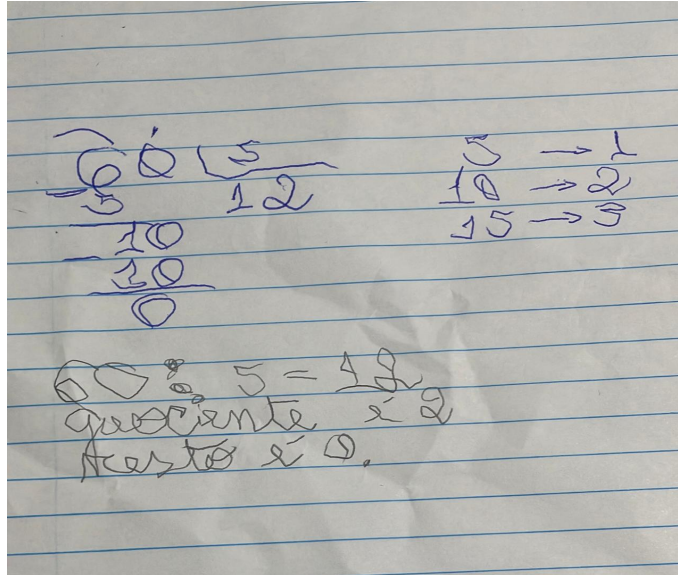 60 5
- 5 12
10
- 10
0
5 → 1
10 → 2
15 → 3
60 : 5 = 12
quociente é 2
resto é 0.